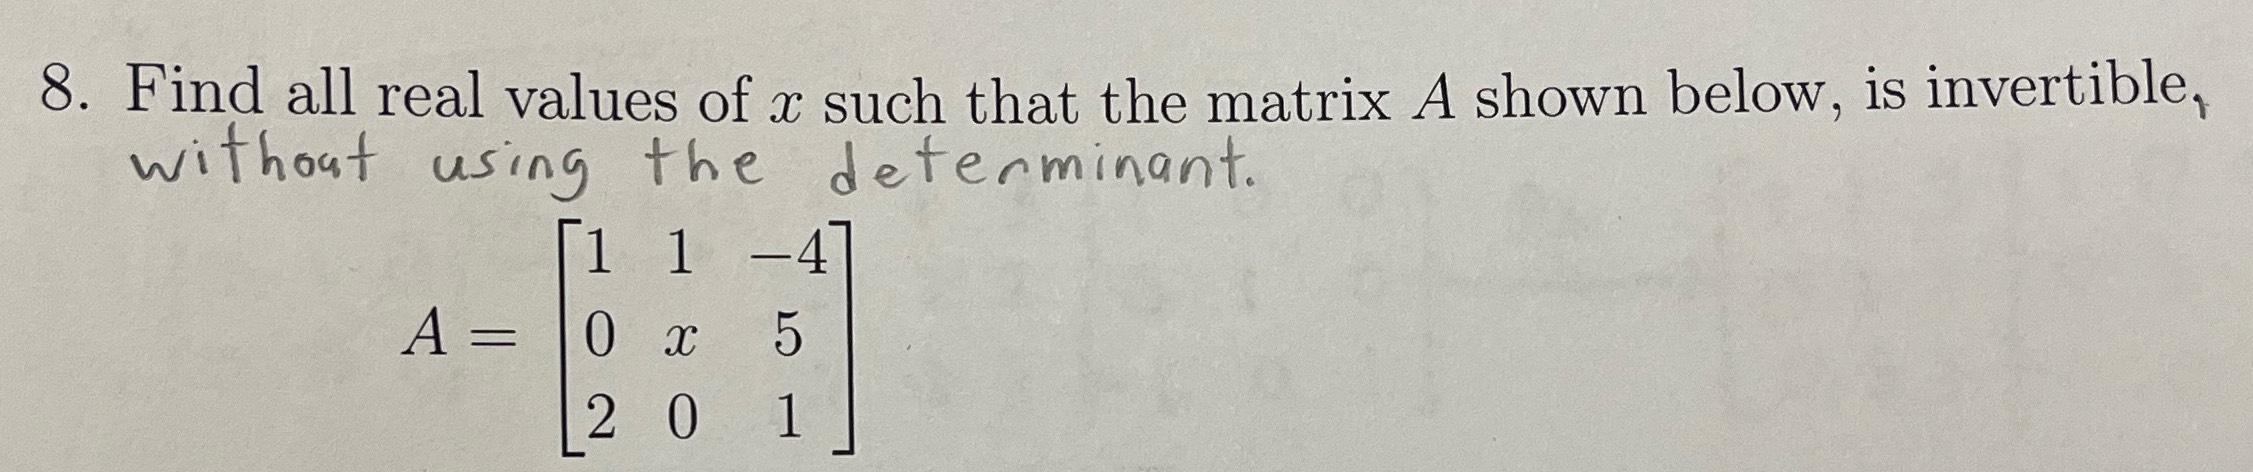 8. Find all real values of x such that the matrix A shown below, is invertible,
without using the determinant.
A = [1 1 −4
0 x 5
2 0 1]